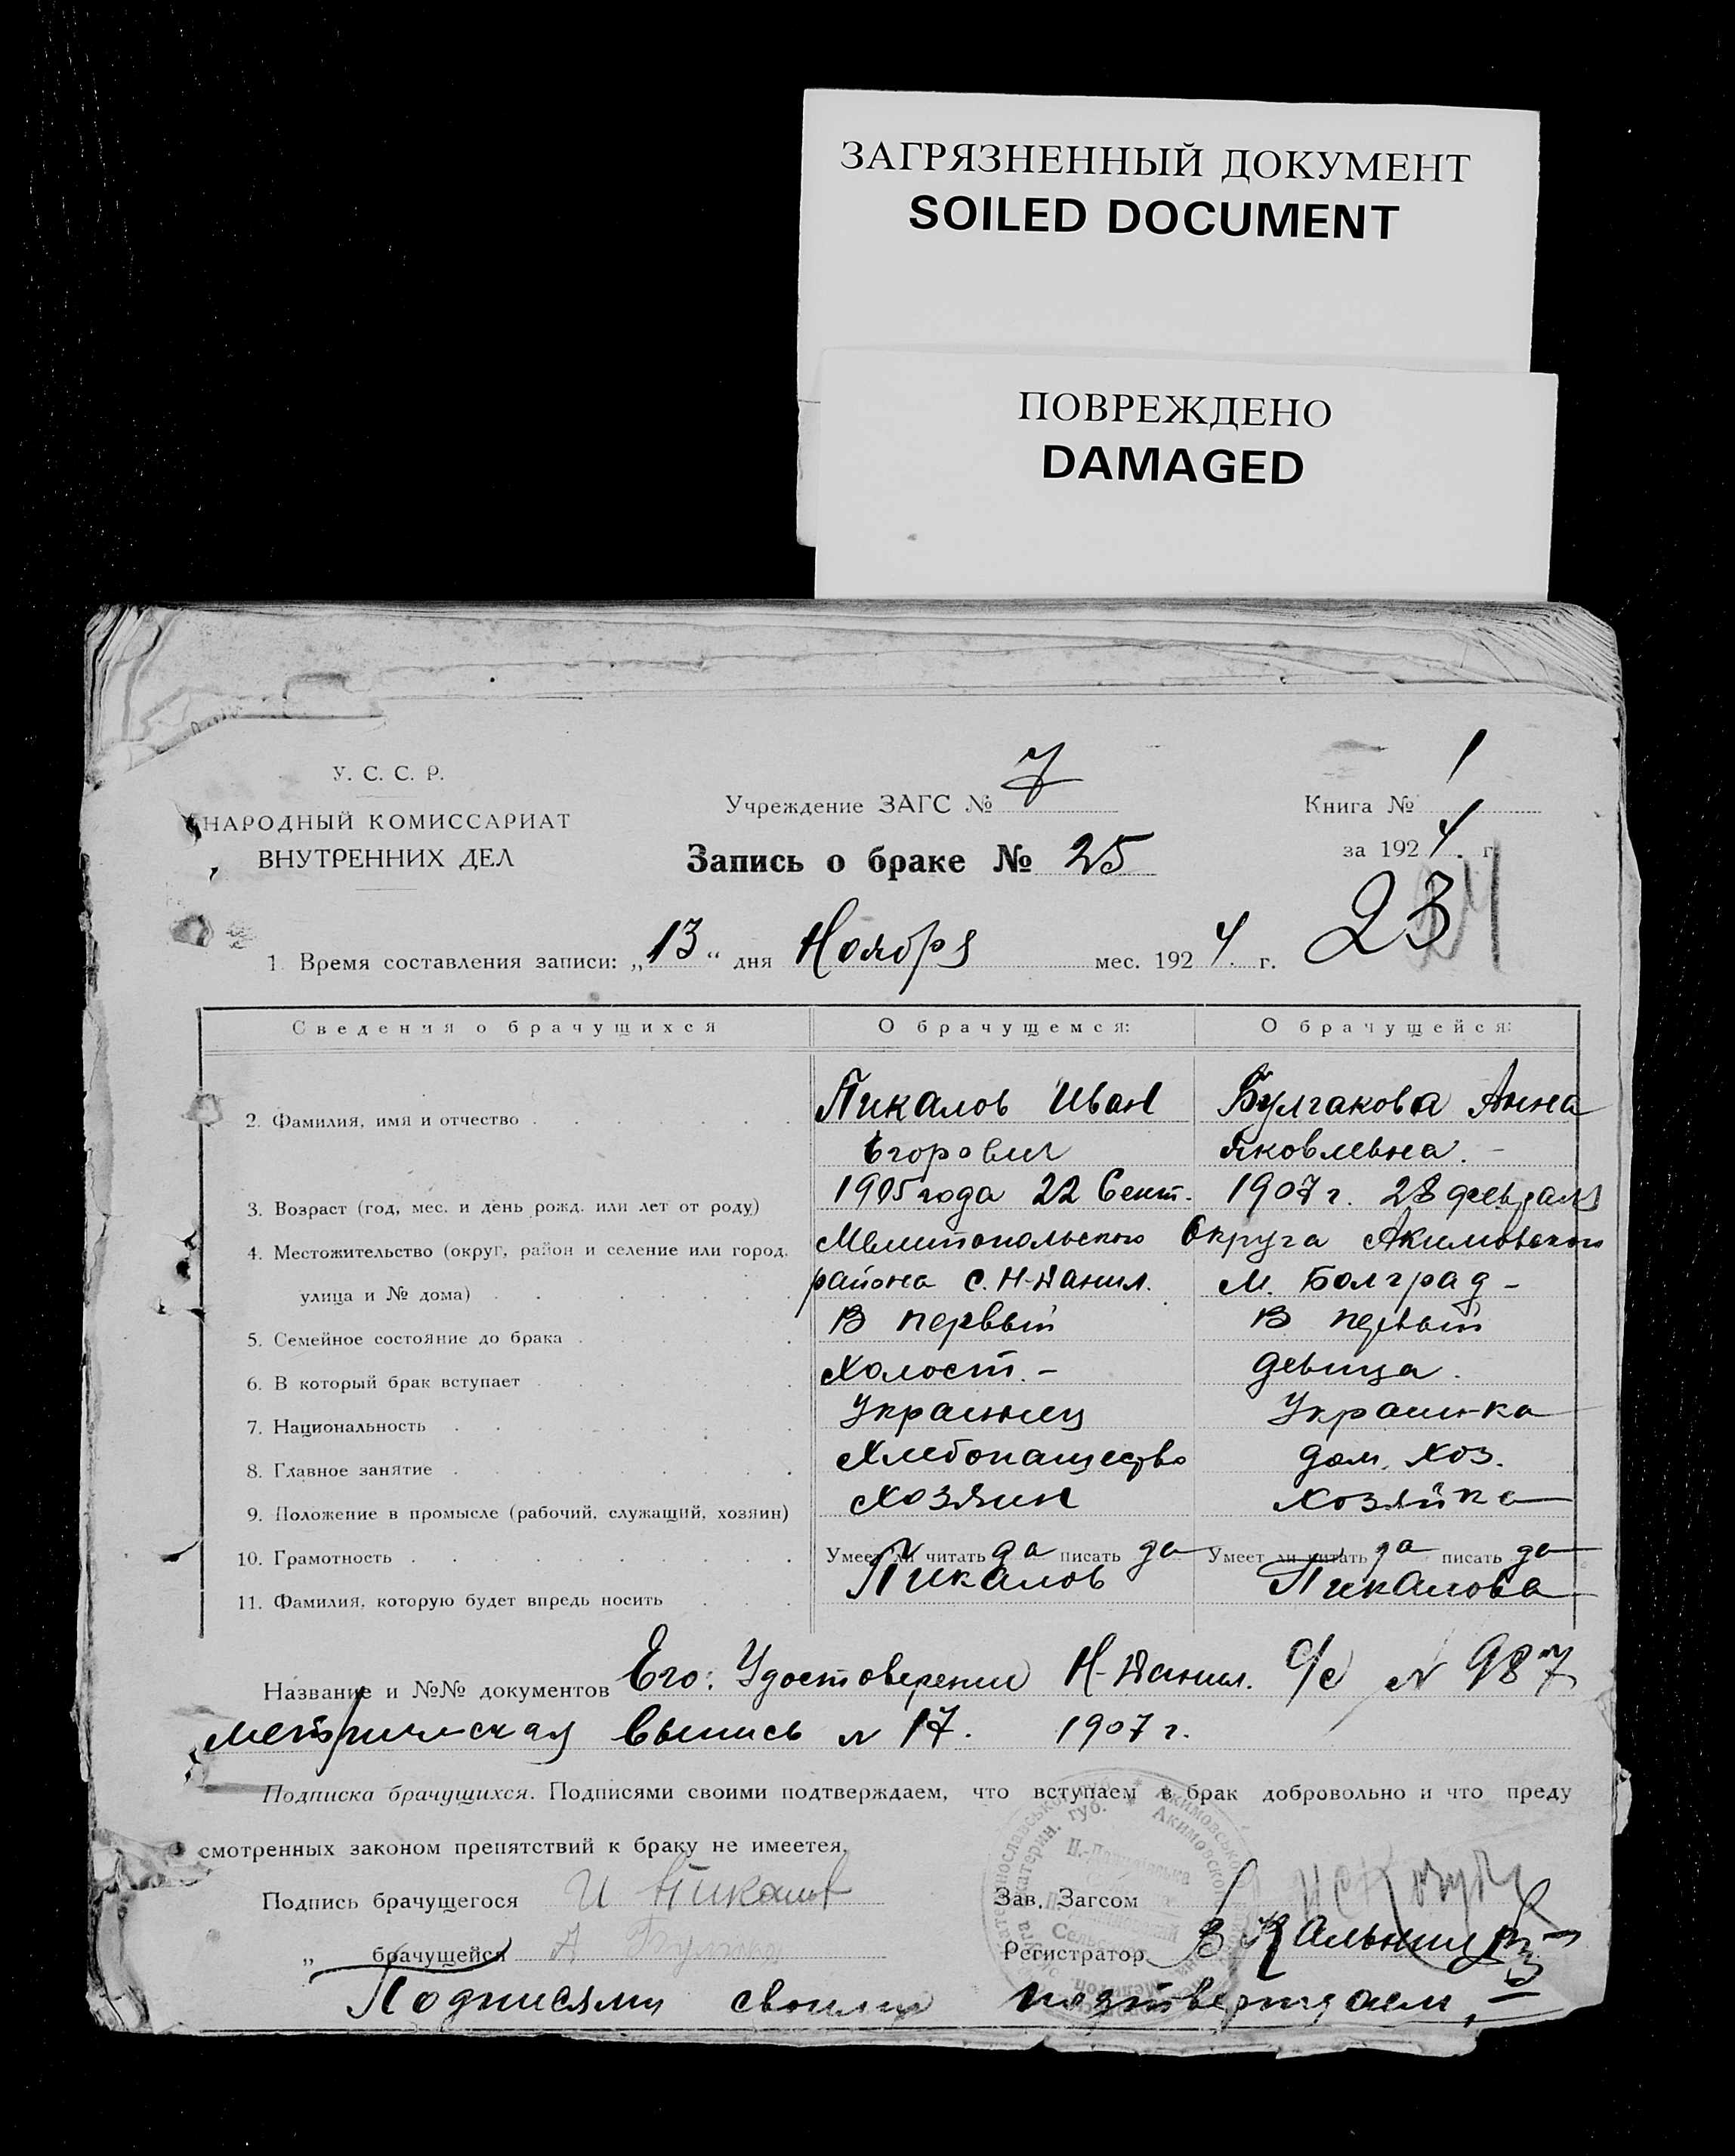 ЗАГРЯЗНЕННЫЙ ДОКУМЕНТ
SOILED DOCUMENT
ПОВРЕЖДЕНО
DAMAGED
У. С. С. Р.
НАРОДНЫЙ КОМИССАРИАТ
ВНУТРЕННИХ ДЕЛ
Учреждение ЗАГС № 7
Книга № 1
за 1924 г.
Запись о браке № 25
23
1. Время составления записи: „13“ дня Ноября мес. 1924 г.
Сведения о брачущихся О брачущемся: О брачущейся:
2. Фамилия, имя и отчество Пикалов Иван Булгакова Анна
Егорович Яковлевна.
3. Возраст (год, мес. и день рожд. или лет от роду) 1905 года 22 Сент. 1907 г. 28 февраля
4. Местожительство (округ, район и селение или город, Мелитопольского Округа Акимовского
улица и № дома) района с. Н-Данил. М. Болград -
5. Семейное состояние до брака В первый В первый
6. В который брак вступает Холост. - девица.
7. Национальность Украинец Украинка
8. Главное занятие Хлебопашество дом. хоз.
9. Положение в промысле (рабочий, служащий, хозяин) Хозяин Хозяйка
10. Грамотность Умеет ли читать да писать да Умеет ли читать да писать да
11. Фамилия, которую будет впредь носить Пикалов Пикалова
Название и №№ документов Его: Удостоверение Н-Данил. С/с N 987
метрическая выпись N 17. 1907 г.
Подписка брачущихся. Подписями своими подтверждаем, что вступаем в брак добровольно и что преду
смотренных законом препятствий к браку не имеется.
Подпись брачущегося И Пикалов Зав. Загсом
„ брачущейся А Регистратор
Подписями своими подтверждаем,